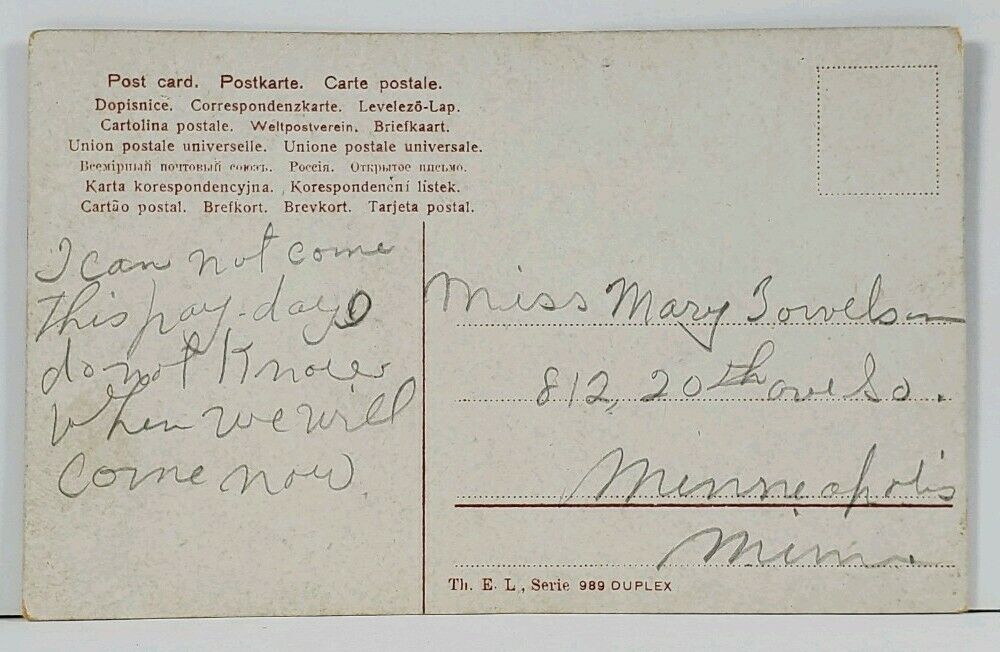 Post card. Postkarte. Carte postale.
Dopisnice. Correspondenzkarte. Levelező-Lap.
Cartolina postale. Weltpostverein. Briefkaart.
Union postale universelle. Unione postale universale.
Всемірный почтовый союзъ. Россія. Открытое письмо.
Karta korespondencyjna. Korespondenční listek.
Cartão postal. Brefkort. Brevkort. Tarjeta postal.
I can not come
this pay-day
do not Know
when we will
come now
Miss Mary
812, 20th ave So.
Minneapolis
Minn.
Th. E. L., Serie 989 DUPLEX